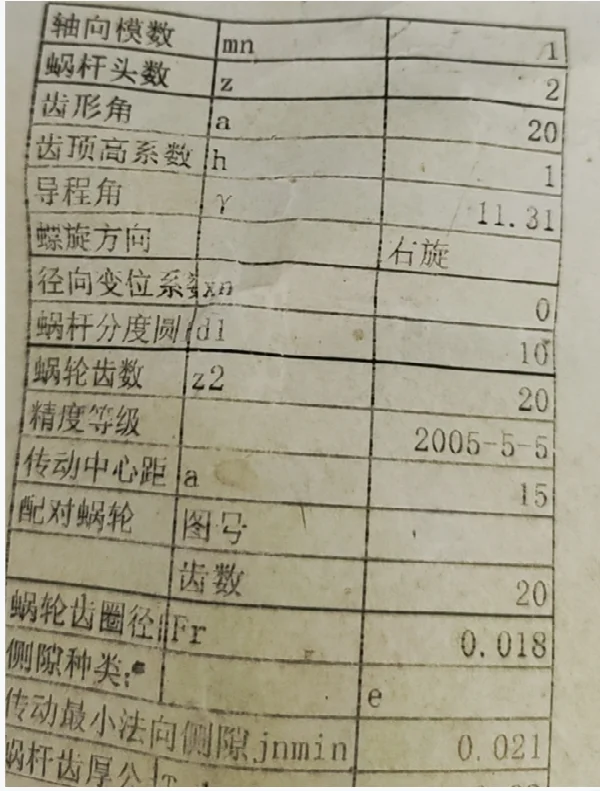 轴向模数 mn 1
蜗杆头数 z 2
齿形角 a 20
齿顶高系数 h 1
导程角 γ 11.31
螺旋方向 右旋
径向变位系数 xn 0
蜗杆分度圆 d1 10
蜗轮齿数 z2 20
精度等级 2005-5-5
传动中心距 a 15
配对蜗轮 图号
齿数 20
蜗轮齿圈径 Fr 0.018
侧隙种类: e
传动最小法向侧隙 jnmin 0.021
蜗杆齿厚公